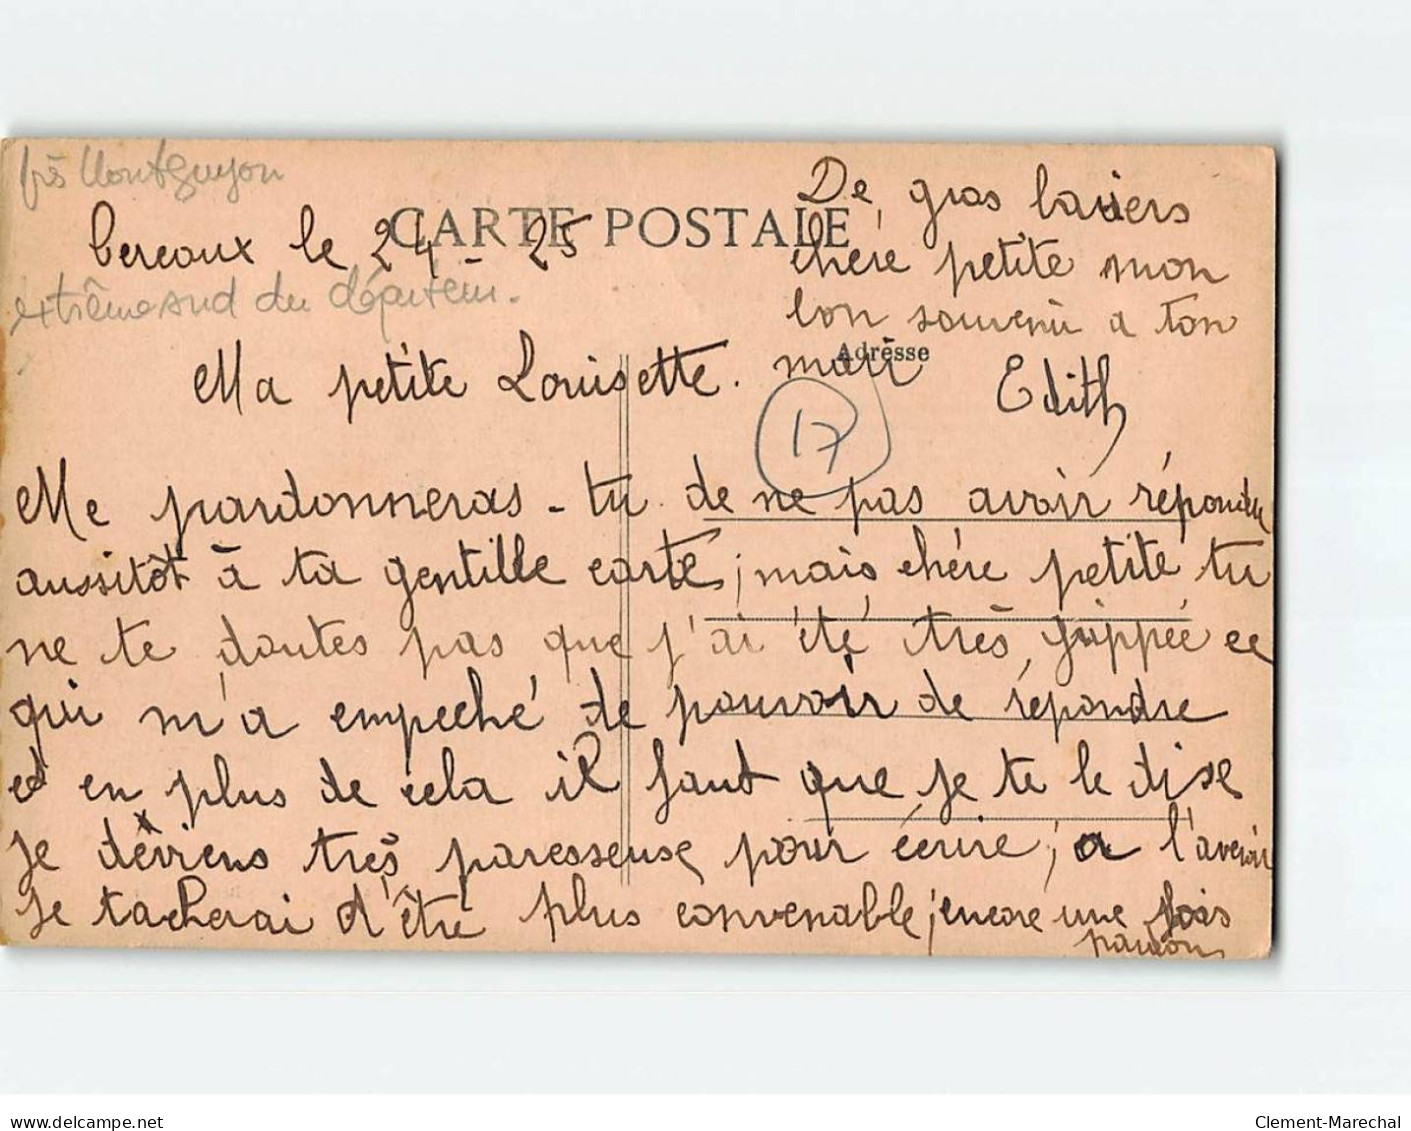 près Montguyon
CARTE POSTALE
Cercoux le 24 - 25
extrême sud du départem.
Ma petite Louisette.
Adresse
17
Me pardonneras - tu de ne pas avoir répondu
aussitôt à ta gentille carte, mais chére petite tu
ne te doutes pas que j'ai été très grippée ce
qui m'a empeché de pouvoir de répondre
et en plus de cela il faut que je te le dise
je deviens très paresseuse pour écrire, a l'avenir
je tacherai d'être plus convenable, encore une fois
pardon
De gros baisers
chére petite mon
bon souvenir a ton
mari
Edith
www.delcampe.net
Clement-Marechal